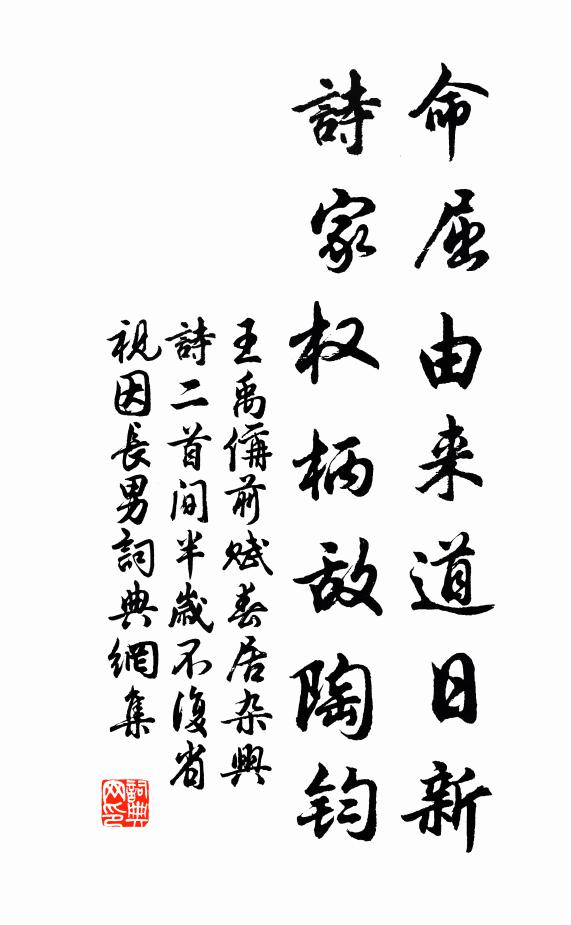 命屈由来道日新
詩家权柄敌陶钧
王禹偁前赋春居杂興
詩二首间半歳不復省
視因長男詞典網集
詞典网印